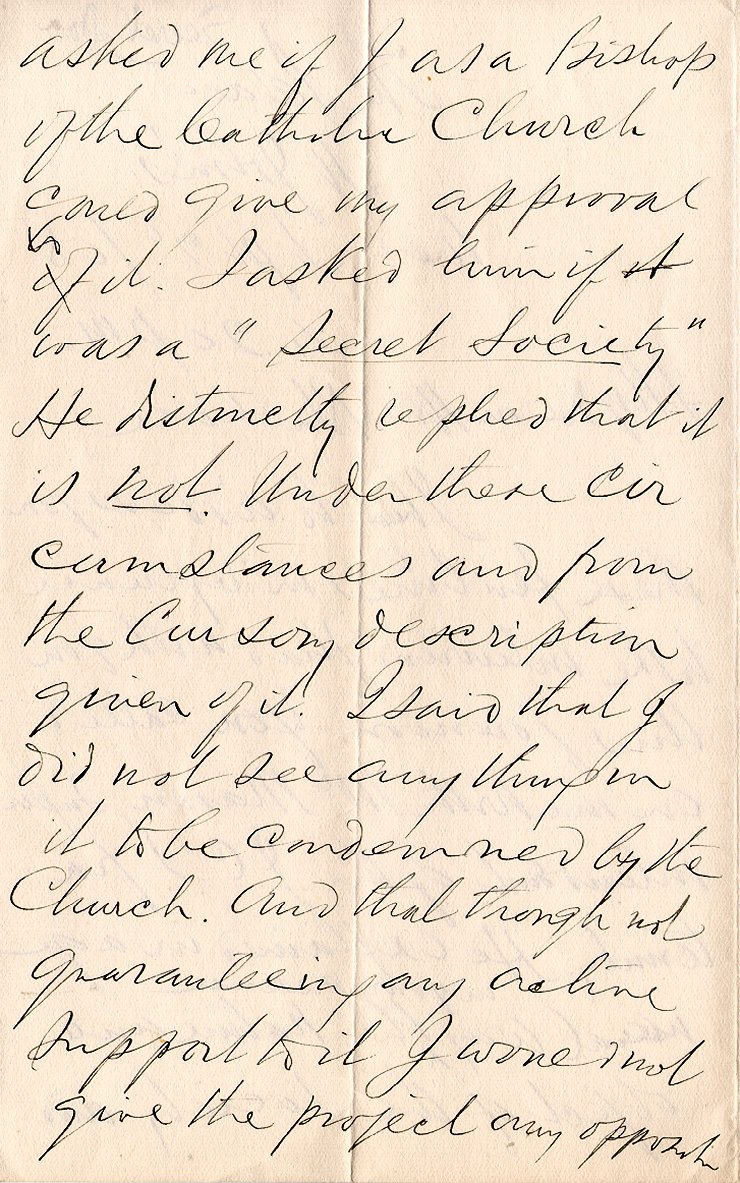 asked me if I as a Bishop
of the Catholic Church
could give my approval
to it. I asked him if it
was a "Secret Society"
He distinctly replied that it
is not. Under these cir
cumstances and from
the Cursory description
given of it. I said that I
did not see any thing in
it to be condemned by the
Church. And that though not
guaranteeing any active
support to it I would not
give the project any opposition